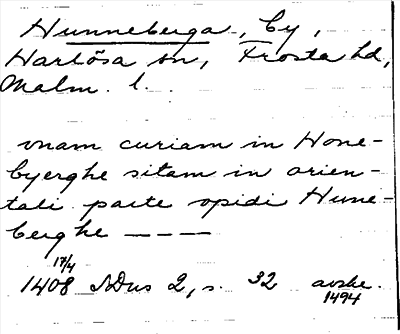 Hunneberga, by,
Harlösa sn, Frosta hd,
Malm. l.
vnam curiam in Hone-
byerghe sitam in orien-
tali parte opidi Hune-
berghe ----
17/4
1408 SDns 2, s. 32 avskr.
1494